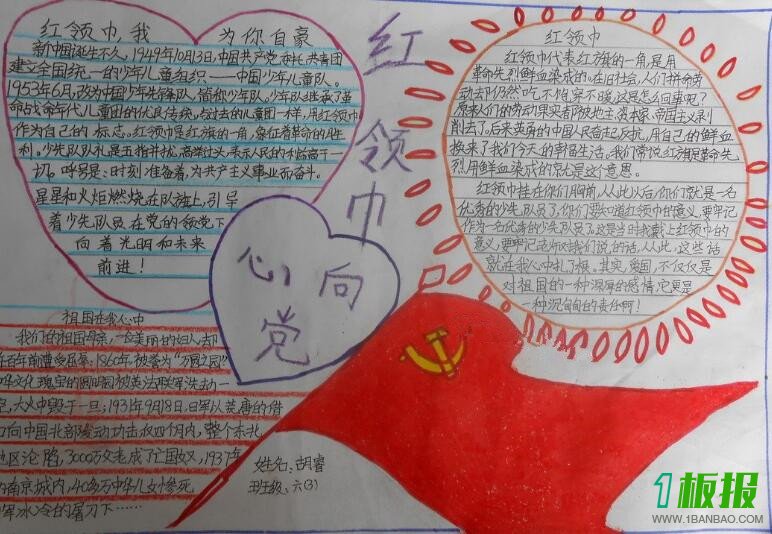 红领巾,我 为你自豪
新中国诞生不久,1949年10月13日,中国共产党委托共青团
建立全国统一的少年儿童组织——中国少年儿童队。
1953年6月,改为中国少年先锋队,简称少年队。少年队继承革
命战争年代儿童团的优良传统,与过去的儿童团一样,用红领巾
作为自己的标志。红领巾是红旗的一角,象征着革命的胜
利。少先队队礼是五指并拢,高举过头,表示人民的利益高于一
切。呼号是:时刻准备着,为共产主义事业而奋斗。
星星和火炬燃烧在队旗上,引导
着少先队员在党的领党下
向着光明和未来
前进!
红领巾
心向党
红领巾
红领巾代表红旗的一角,是用
革命先烈鲜血染成的。在旧社会,人们拼命劳
动去却仍然吃不饱穿不暖,这是怎么回事呢?
原来人们的劳动果实都被地主、资本家、帝国主义剥
削去了。后来英勇的中国人奋起反抗,用自己的鲜血
换来了我们今天的幸福生活。我们常说红旗是革命先
烈用鲜血染成的就是这个意思。
红领巾挂在你们胸前,从此以后,你们就是一名
优秀的少先队员了,你们要知道红领巾的意义,要牢记
作为一名优秀的少先队员了。这是当时我戴上红领巾的
意义,要牢记老师对我们说的话,从此,这些话
就在我心中扎了根。其实,爱国,不仅仅是
对祖国的一种深厚的感情,它更是
一种沉甸甸的责任啊!
祖国在我心中
我们的祖国母亲,一位美丽的妇人,却
在百年前遭受屈辱:1860年,被誉为“万园之园”
中华文化瑰宝的圆明园被英法联军洗劫一
空,大火中毁于一旦;1931年9月18日,日军以荒唐的借
口向中国北部发动攻击,仅四个月内,整个东北
地区沦陷,3000万父老成了亡国奴,1937年
的南京城内,40多万中华儿女惨死
军冰冷的屠刀下……
姓名:胡睿
班级:六(3)
1板报
WWW.1BANBAO.COM